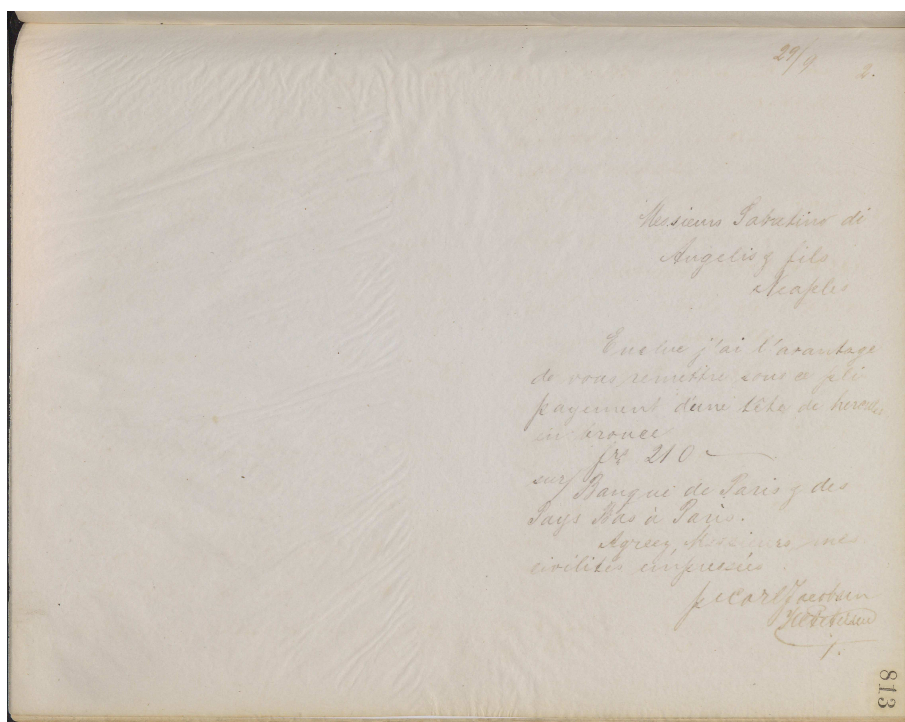 29/9 2.
Messieurs Sabatino di
Angelis & fils
Neaples
j'ai l'avantage
de vous remettre sous ce pli
payement d'une tête de hercules
en bronce
fr 210 —
sur Banque de Paris & des
Pays Bas à Paris.
Agreez, Messieurs, mes
civilités empressées
pr Carl Jacobsen
813